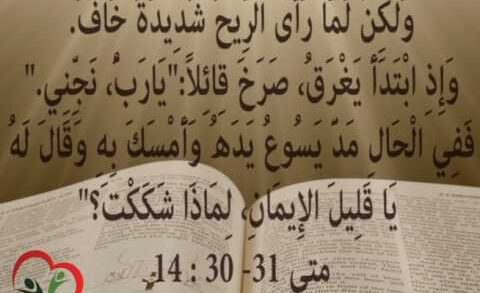 وَلَكِنْ لَمَّا رَأَى الرِّيحَ شَدِيدَةً خَافَ.
وَإِذِ ابْتَدَأَ يَغْرَقُ، صَرَخَ قِائِلاً:"يَارَبُّ، نَجِّنِي."
فَفِي الْحَالِ مَدَّ يَسُوعُ يَدَهُ وَأَمْسَكَ بِهِ وَقَالَ لَهُ
يَا قَلِيلَ الإِيمَانِ، لِمَاذَا شَكَكْتَ؟"
متى 31- 30 : 14